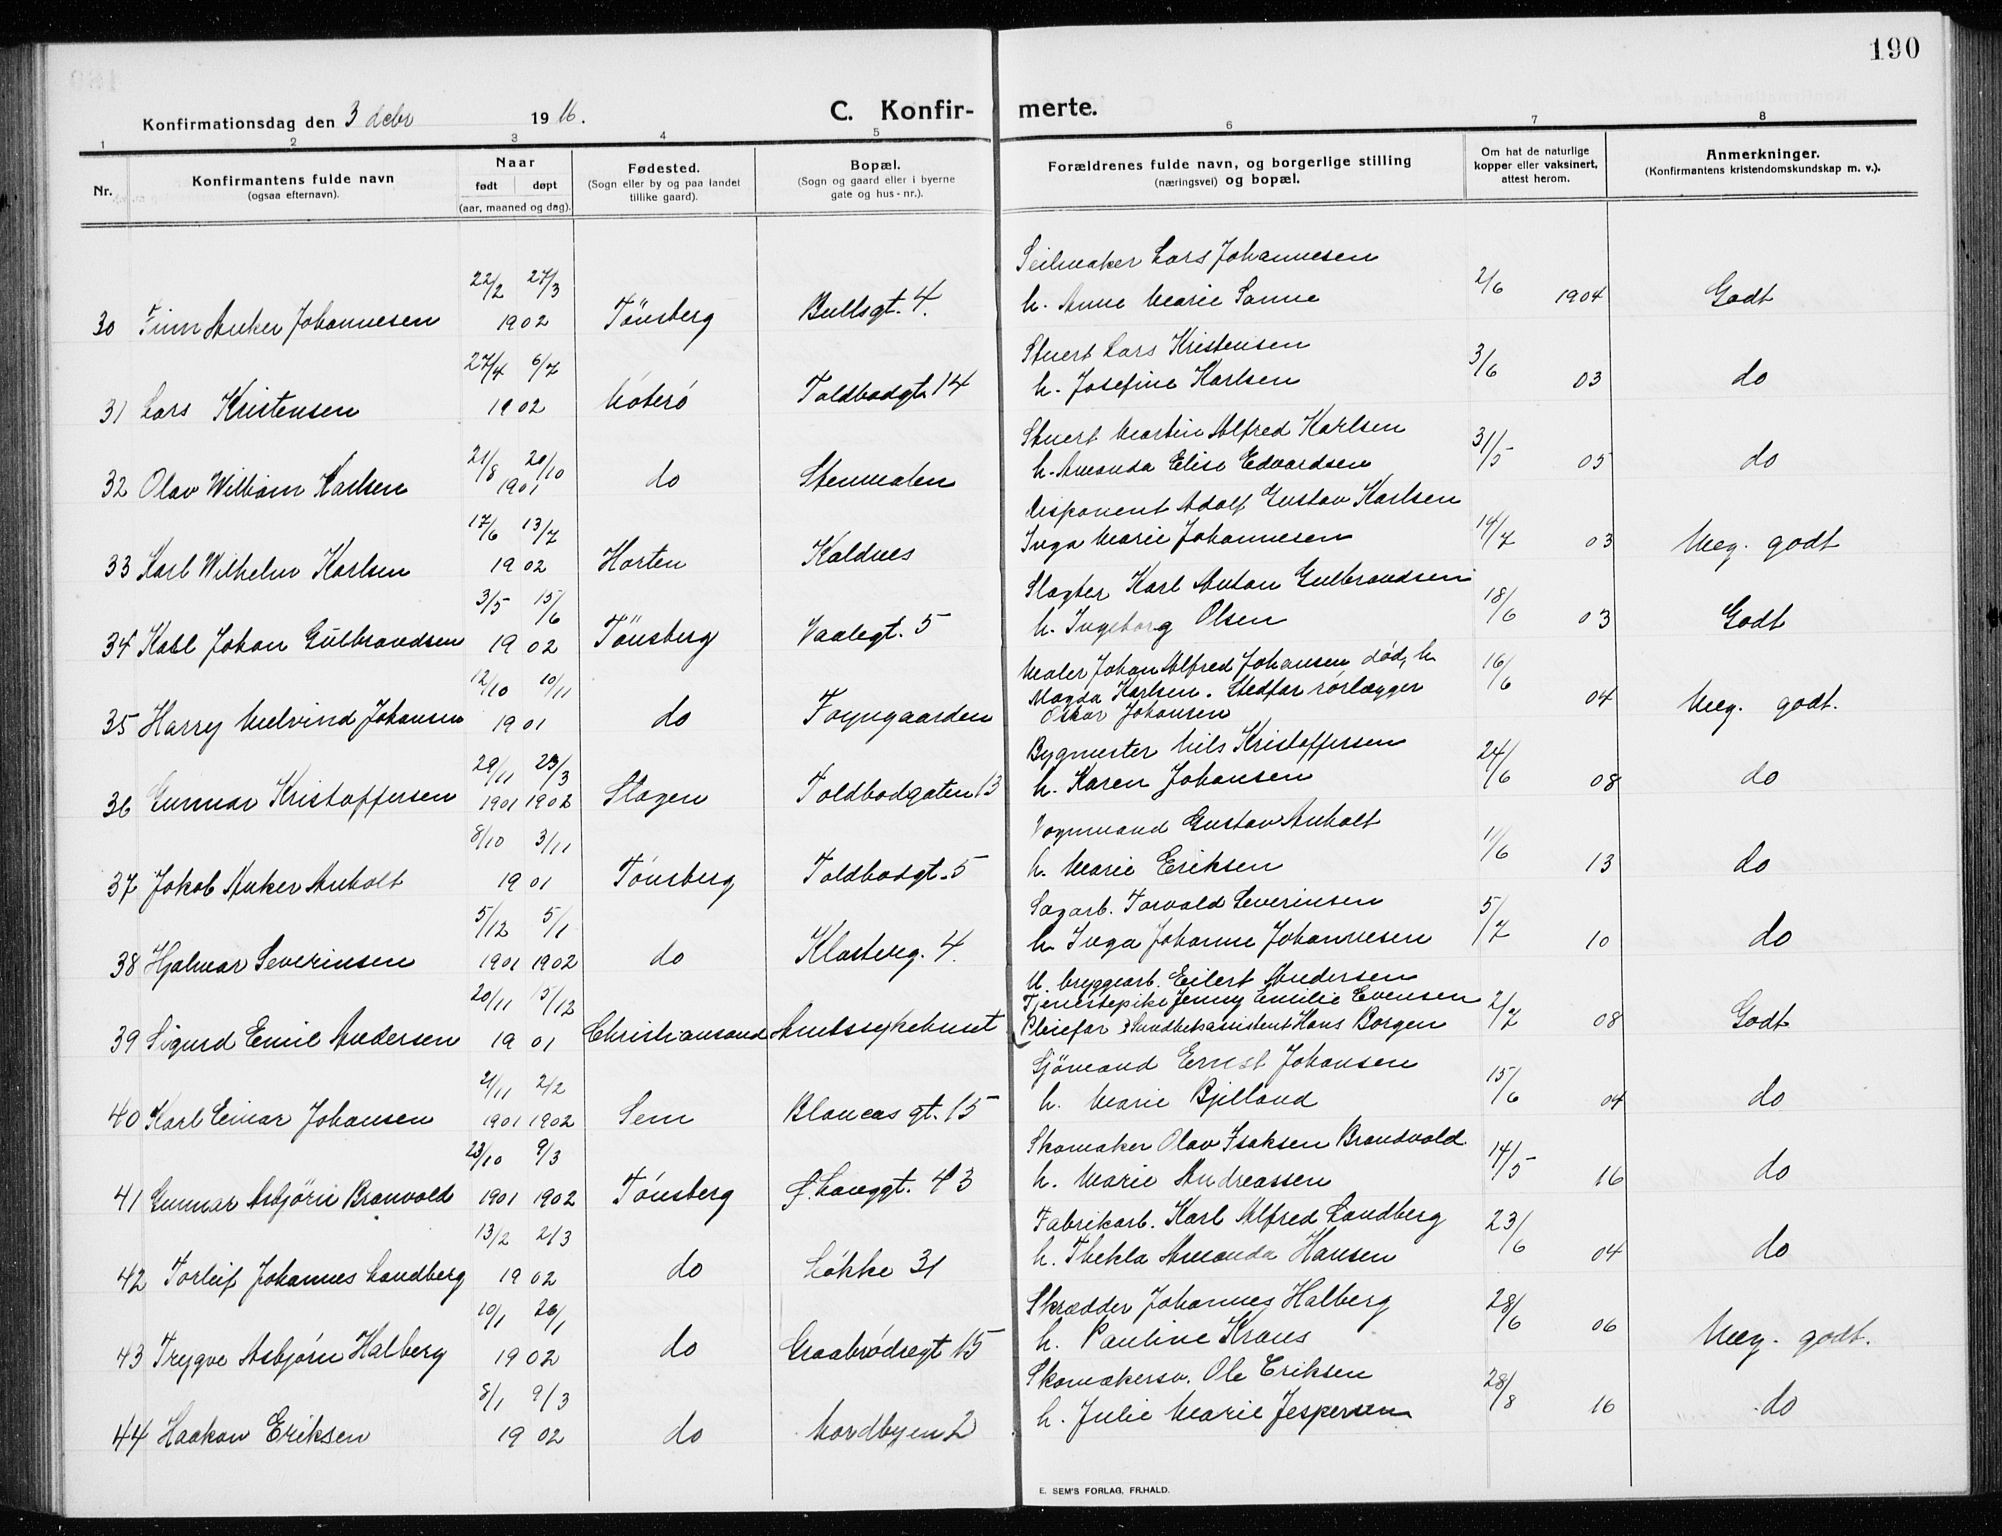 190
Konfirmationsdag den 3 debr 1916.
C. Konfirmerte.
1 2 3 4 5 6 7 8
Nr.
Konfirmantens fulde navn
(ogsaa efternavn).
Naar
født døpt
(aar, maaned og dag).
Fødested.
(Sogn eller by og paa landet
tillike gaard).
Bopæl.
(Sogn og gaard eller i byerne
gate og hus-nr.).
Forældrenes fulde navn, og borgerlige stilling
(næringsvei) og bopæl.
Om hat de naturlige
kopper eller vaksinert,
attest herom.
Anmerkninger.
(Konfirmantens kristendomskundskap m. v.).
30 Finn Anker Johannesen 22/2 27/3 1902 Tönsberg Bullsgt. 4.
Seilmaker Lars Johannesen
h. Anne Marie Sanne 2/6 1904 Godt
31 Lars Kristensen 27/4 6/7 1902 Nöterö Toldbodgt. 14
Stuert Lars Kristensen
h. Josefine Karlsen 3/6 03 do
32 Olav William Karlsen 21/8 20/10 1901 do Stenmalen
Stuert Martin Alfred Karlsen
h. Amanda Elise Edvardsen 31/5 05 do
33 Karl Wilhelm Karlsen 17/6 13/7 1902 Horten Kaldnes
Disponent Adolf Gustav Karlsen
Inga Marie Johannesen 14/7 03 Meg. godt
34 Karl Johan Gulbrandsen 3/5 15/6 1902 Tönsberg Vaalegt. 5
Slagter Karl Anton Gulbrandsen
h. Ingeborg Olsen 18/6 03 Godt
35 Harry Melvind Johansen 12/10 10/11 1901 do Foyngaarden
Maler Johan Alfred Johansen død, h
Magda Karlsen. Stedfar rørlægger
Oskar Johansen 16/6 04 Meg. godt.
36 Gunnar Kristoffersen 29/11 23/3 1901 1902 Slagen Toldbodgaten 13
Bygmester Nils Kristoffersen
h. Karen Johansen 24/6 08 do
37 Jakob Anker Anholt 8/10 3/11 1901 Tónsberg Toldbodgt. 5
Vognmand Gustav Anholt
h. Marie Eriksen 1/6 13 do
38 Hjalmar Severinsen 5/12 5/1 1901 1902 do Klosterg. 4.
Sagarb. Torvald Severinsen
h Inga Johanne Johannesen 5/7 10 do
39 Sigurd Emil Andersen 20/11 15/12 1901 Christiansand Amtssykehuset
U. bryggearb. Eilert Andersen
Tjenestepike Jenny Emilie Evensen
Pleiefar: Sundhetsassistent Hans Borgen 2/7 08 Godt
40 Karl Einar Johansen 21/11 2/2 1901 1902 Sem Blancas gt. 15
Sjömand Ernst Johansen
h. Marie Bjelland 15/6 04 do
41 Gunnar Asbjörn Branvold 23/10 9/3 1901 1902 Tónsberg Ø. Langgt. 43
Skomaker Olav Isaksen Brandvold
h. Marie Andreassen 14/5 16 do
42 Torleif Johannes Landberg 13/2 2/3 1902 do Lókke 31
Fabrikarb. Karl Alfred Landberg
h. Thekla Amanda Hansen 23/6 04 do
43 Trygve Asbjórn Halberg 10/1 26/1 1902 do Graabrødregt 15
Skrædder Johannes Halberg
h. Pauline Kraus 28/6 06 Meg. godt.
44 Haakon Eriksen 8/1 9/3 1902 do Nordbyen 2
Skomakersv. Ole Eriksen
h. Julie Marie Jespersen 28/8 16 do
E. SEM'S FORLAG, FR.HALD.